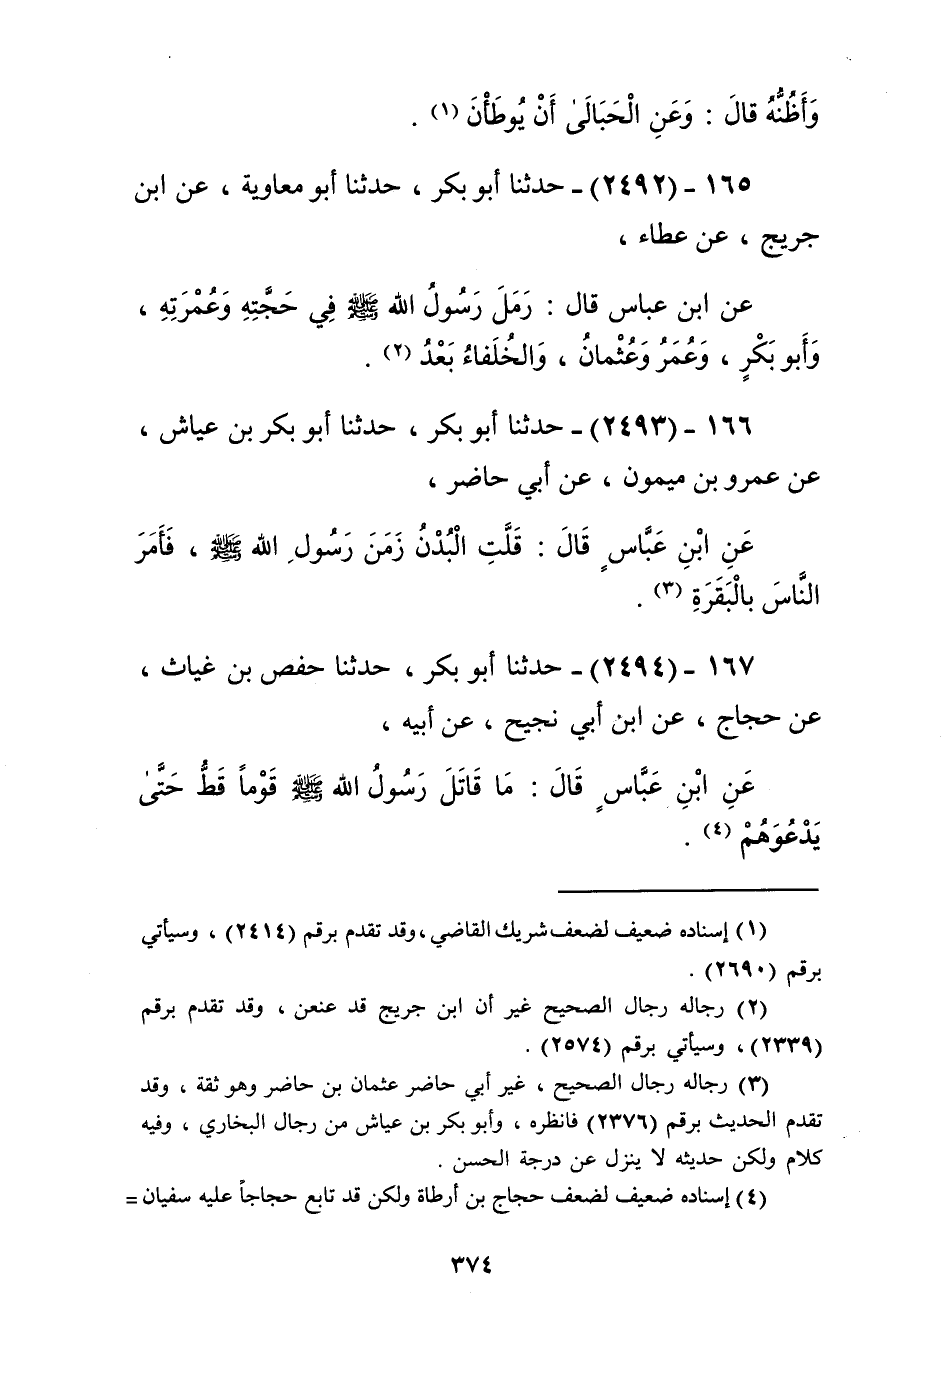 وَأَظُنُّهُ قالَ : وَعَنِ الْحَبَالَىٰ أَنْ يُوطَأْنَ (١) .
١٦٥ ـ (٢٤٩٢) ـ حدثنا أبو بكر ، حدثنا أبو معاوية ، عن ابن
جريج ، عن عطاء ،
عن ابن عباس قال : رَمَلَ رَسُولُ الله ﷺ فِي حَجَّتِهِ وَعُمْرَتِهِ ،
وَأَبو بَكْرٍ ، وَعُمَرُ وَعُثْمانُ ، وَالخُلَفاءُ بَعْدُ (٢) .
١٦٦ ـ (٢٤٩٣) ـ حدثنا أبو بكر ، حدثنا أبو بكر بن عياش ،
عن عمرو بن ميمون ، عن أبي حاضر ،
عَنِ ابْنِ عَبَّاسٍ قَالَ : قَلَّتِ الْبُدْنُ زَمَنَ رَسُولِ الله ﷺ ، فَأَمَرَ
النَّاسَ بالْبَقَرَةِ (٣) .
١٦٧ ـ (٢٤٩٤) ـ حدثنا أبو بكر ، حدثنا حفص بن غياث ،
عن حجاج ، عن ابن أبي نجيح ، عن أبيه ،
عَنِ ابْنِ عَبَّاسٍ قَالَ : مَا قَاتَلَ رَسُولُ الله ﷺ قَوْماً قَطُّ حَتَّىٰ
يَدْعُوَهُمْ (٤) .
(١) إسناده ضعيف لضعف شريك القاضي ، وقد تقدم برقم (٢٤١٤) ، وسيأتي
برقم (٢٦٩٠) .
(٢) رجاله رجال الصحيح غير أن ابن جريج قد عنعن ، وقد تقدم برقم
(٢٣٣٩) ، وسيأتي برقم (٢٥٧٤) .
(٣) رجاله رجال الصحيح ، غير أبي حاضر عثمان بن حاضر وهو ثقة ، وقد
تقدم الحديث برقم (٢٣٧٦) فانظره ، وأبو بكر بن عياش من رجال البخاري ، وفيه
كلام ولكن حديثه لا ينزل عن درجة الحسن .
(٤) إسناده ضعيف لضعف حجاج بن أرطاة ولكن قد تابع حجاجاً عليه سفيان =
٣٧٤